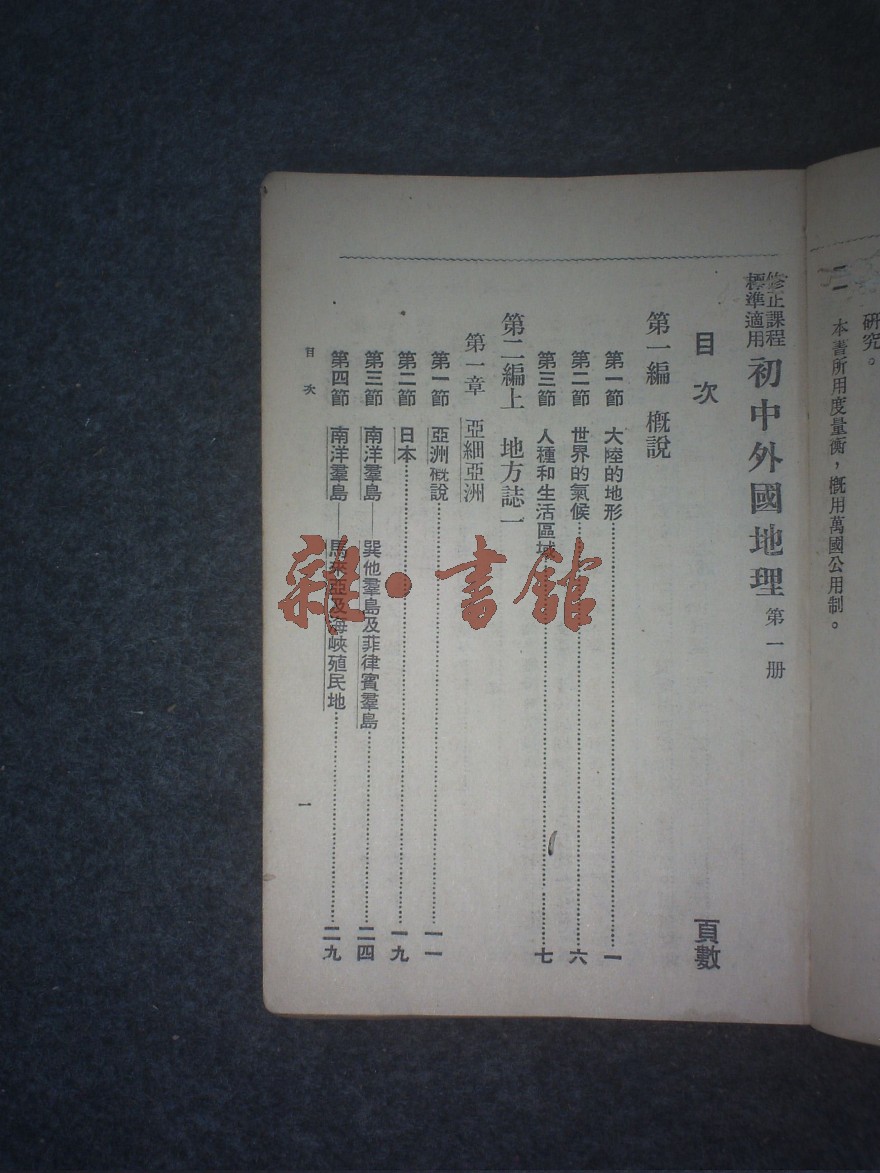 研究。
二 本書所用度量衡，概用萬國公用制。
修正課程標準適用 初中外國地理 第一册
目次 頁數
第一編 槪說
第一節 大陸的地形 一
第二節 世界的氣候 六
第三節 人種和生活區域 七
第二編上 地方誌一
第一章 亞細亞洲
第一節 亞洲概說 一一
第二節 日本 一九
第三節 南洋羣島——巽他羣島及菲律賓羣島 二四
第四節 南洋羣島——馬來亞及海峽殖民地 二九
目次 一
雜·書館